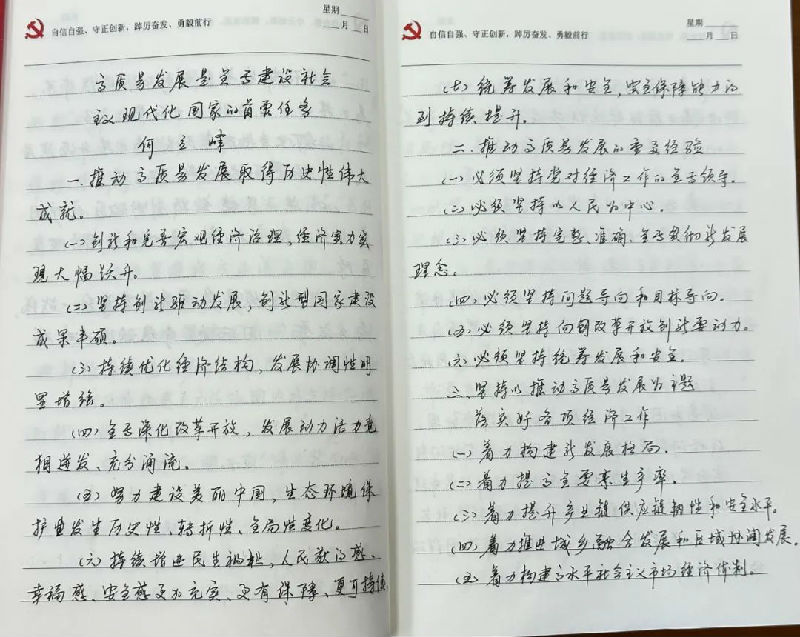 自信自强、守正创新,踔厉奋发、勇毅前行
星期
月 日
高质量发展是全面建设社会
主义现代化国家的首要任务
何立峰
一.推动高质量发展取得历史性伟大
成就。
(一)创新和完善宏观经济治理,经济实力实
现大幅跃升。
(二)坚持创新驱动发展,创新型国家建设
成果丰硕。
(三)持续优化经济结构,发展协调性明
显增强。
(四)全面深化改革开放,发展动力活力竞
相迸发、充分涌流。
(五)努力建设美丽中国,生态环境保
护发生历史性、转折性、全局性变化。
(六)持续增进民生福祉,人民获得感、
幸福感、安全感更加充实、更有保障、更可持续
自信自强、守正创新,踔厉奋发、勇毅前行
星期
月 日
(七)统筹发展和安全,安全保障能力得
到持续提升。
二.推动高质量发展的重要经验
(一)必须坚持党对经济工作的全面领导。
(二)必须坚持以人民为中心。
(三)必须坚持完整、准确、全面贯彻新发展
理念。
(四)必须坚持问题导向和目标导向。
(五)必须坚持向创改革开放创新要动力。
(六)必须坚持统筹发展和安全.
三.坚持以推动高质量发展为主题
落实好各项经济工作
(一)着力构建新发展格局.
(二)着力提高全要素生产率.
(三)着力提升产业链供应链韧性和安全水平.
(四)着力推进城乡融合发展和区域协调发展.
(五)着力构建高水平社会主义市场经济体制.